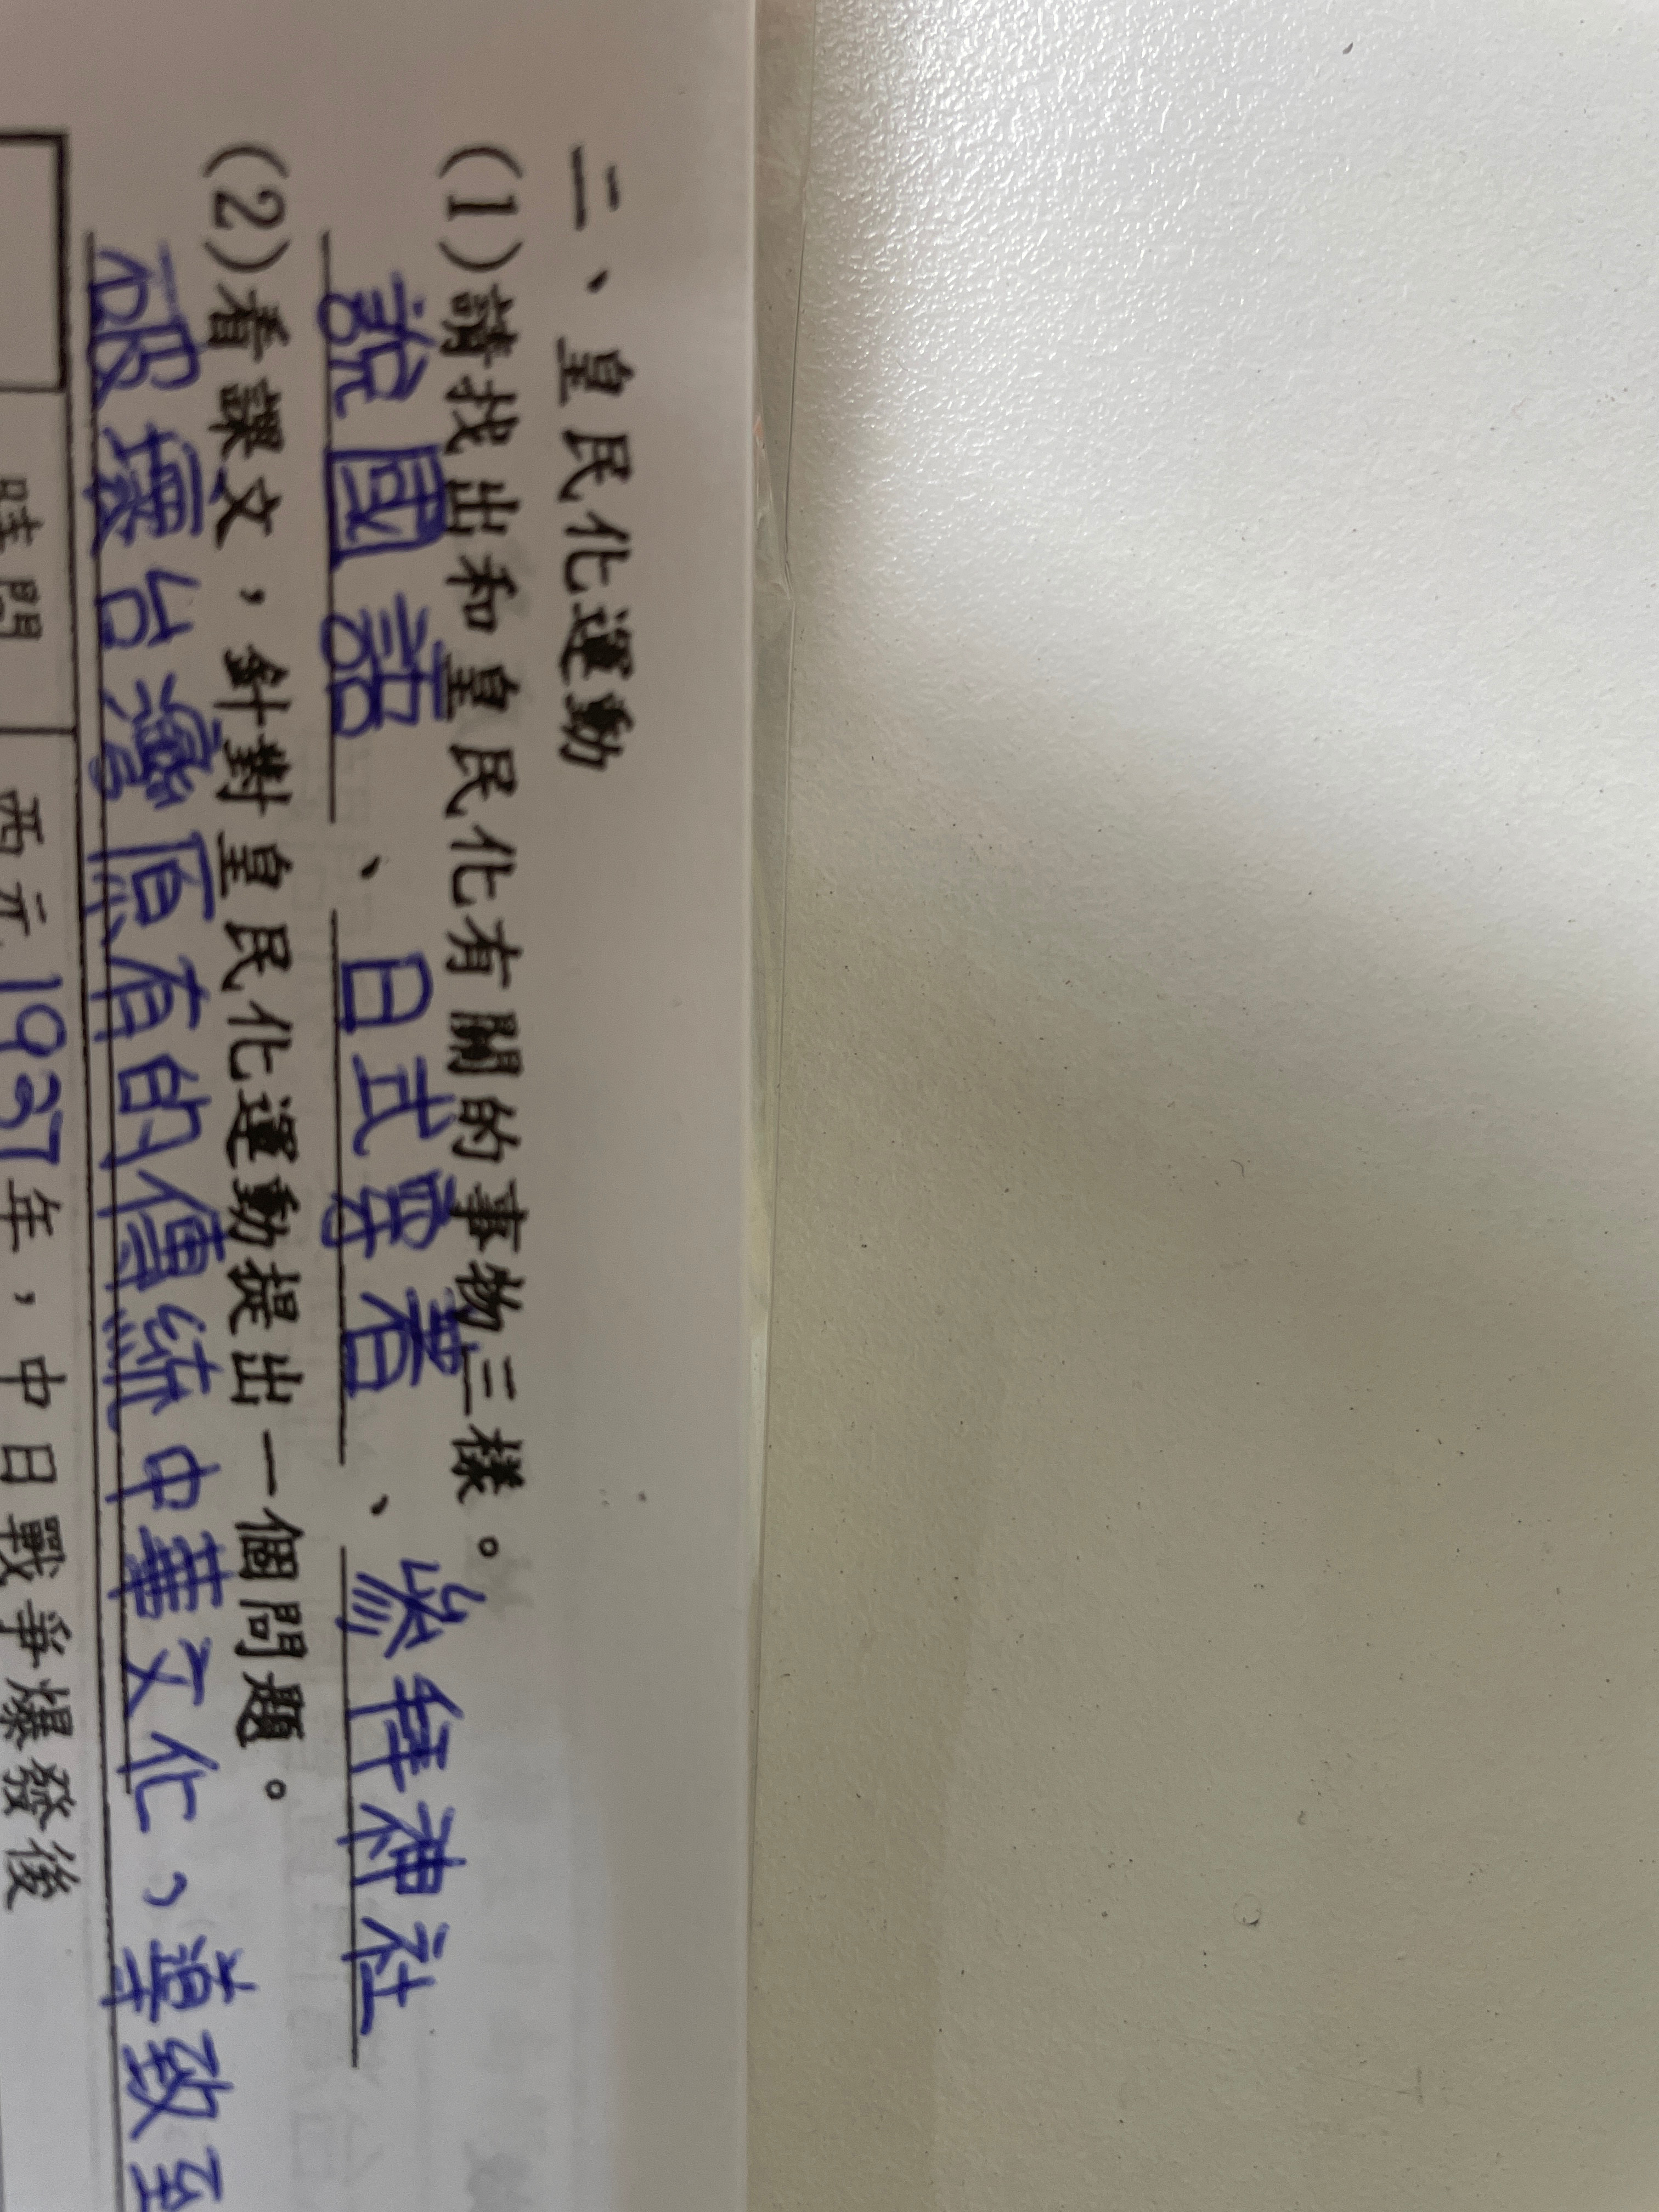 二、皇民化運動
(1)請找出和皇民化有關的事物三樣。
說國語、日式穿着、參拜神社
(2)看課文，針對皇民化運動提出一個問題。
破壞台灣原有的傳統中華文化，導致至
時間 西元1937年，中日戰爭爆發後